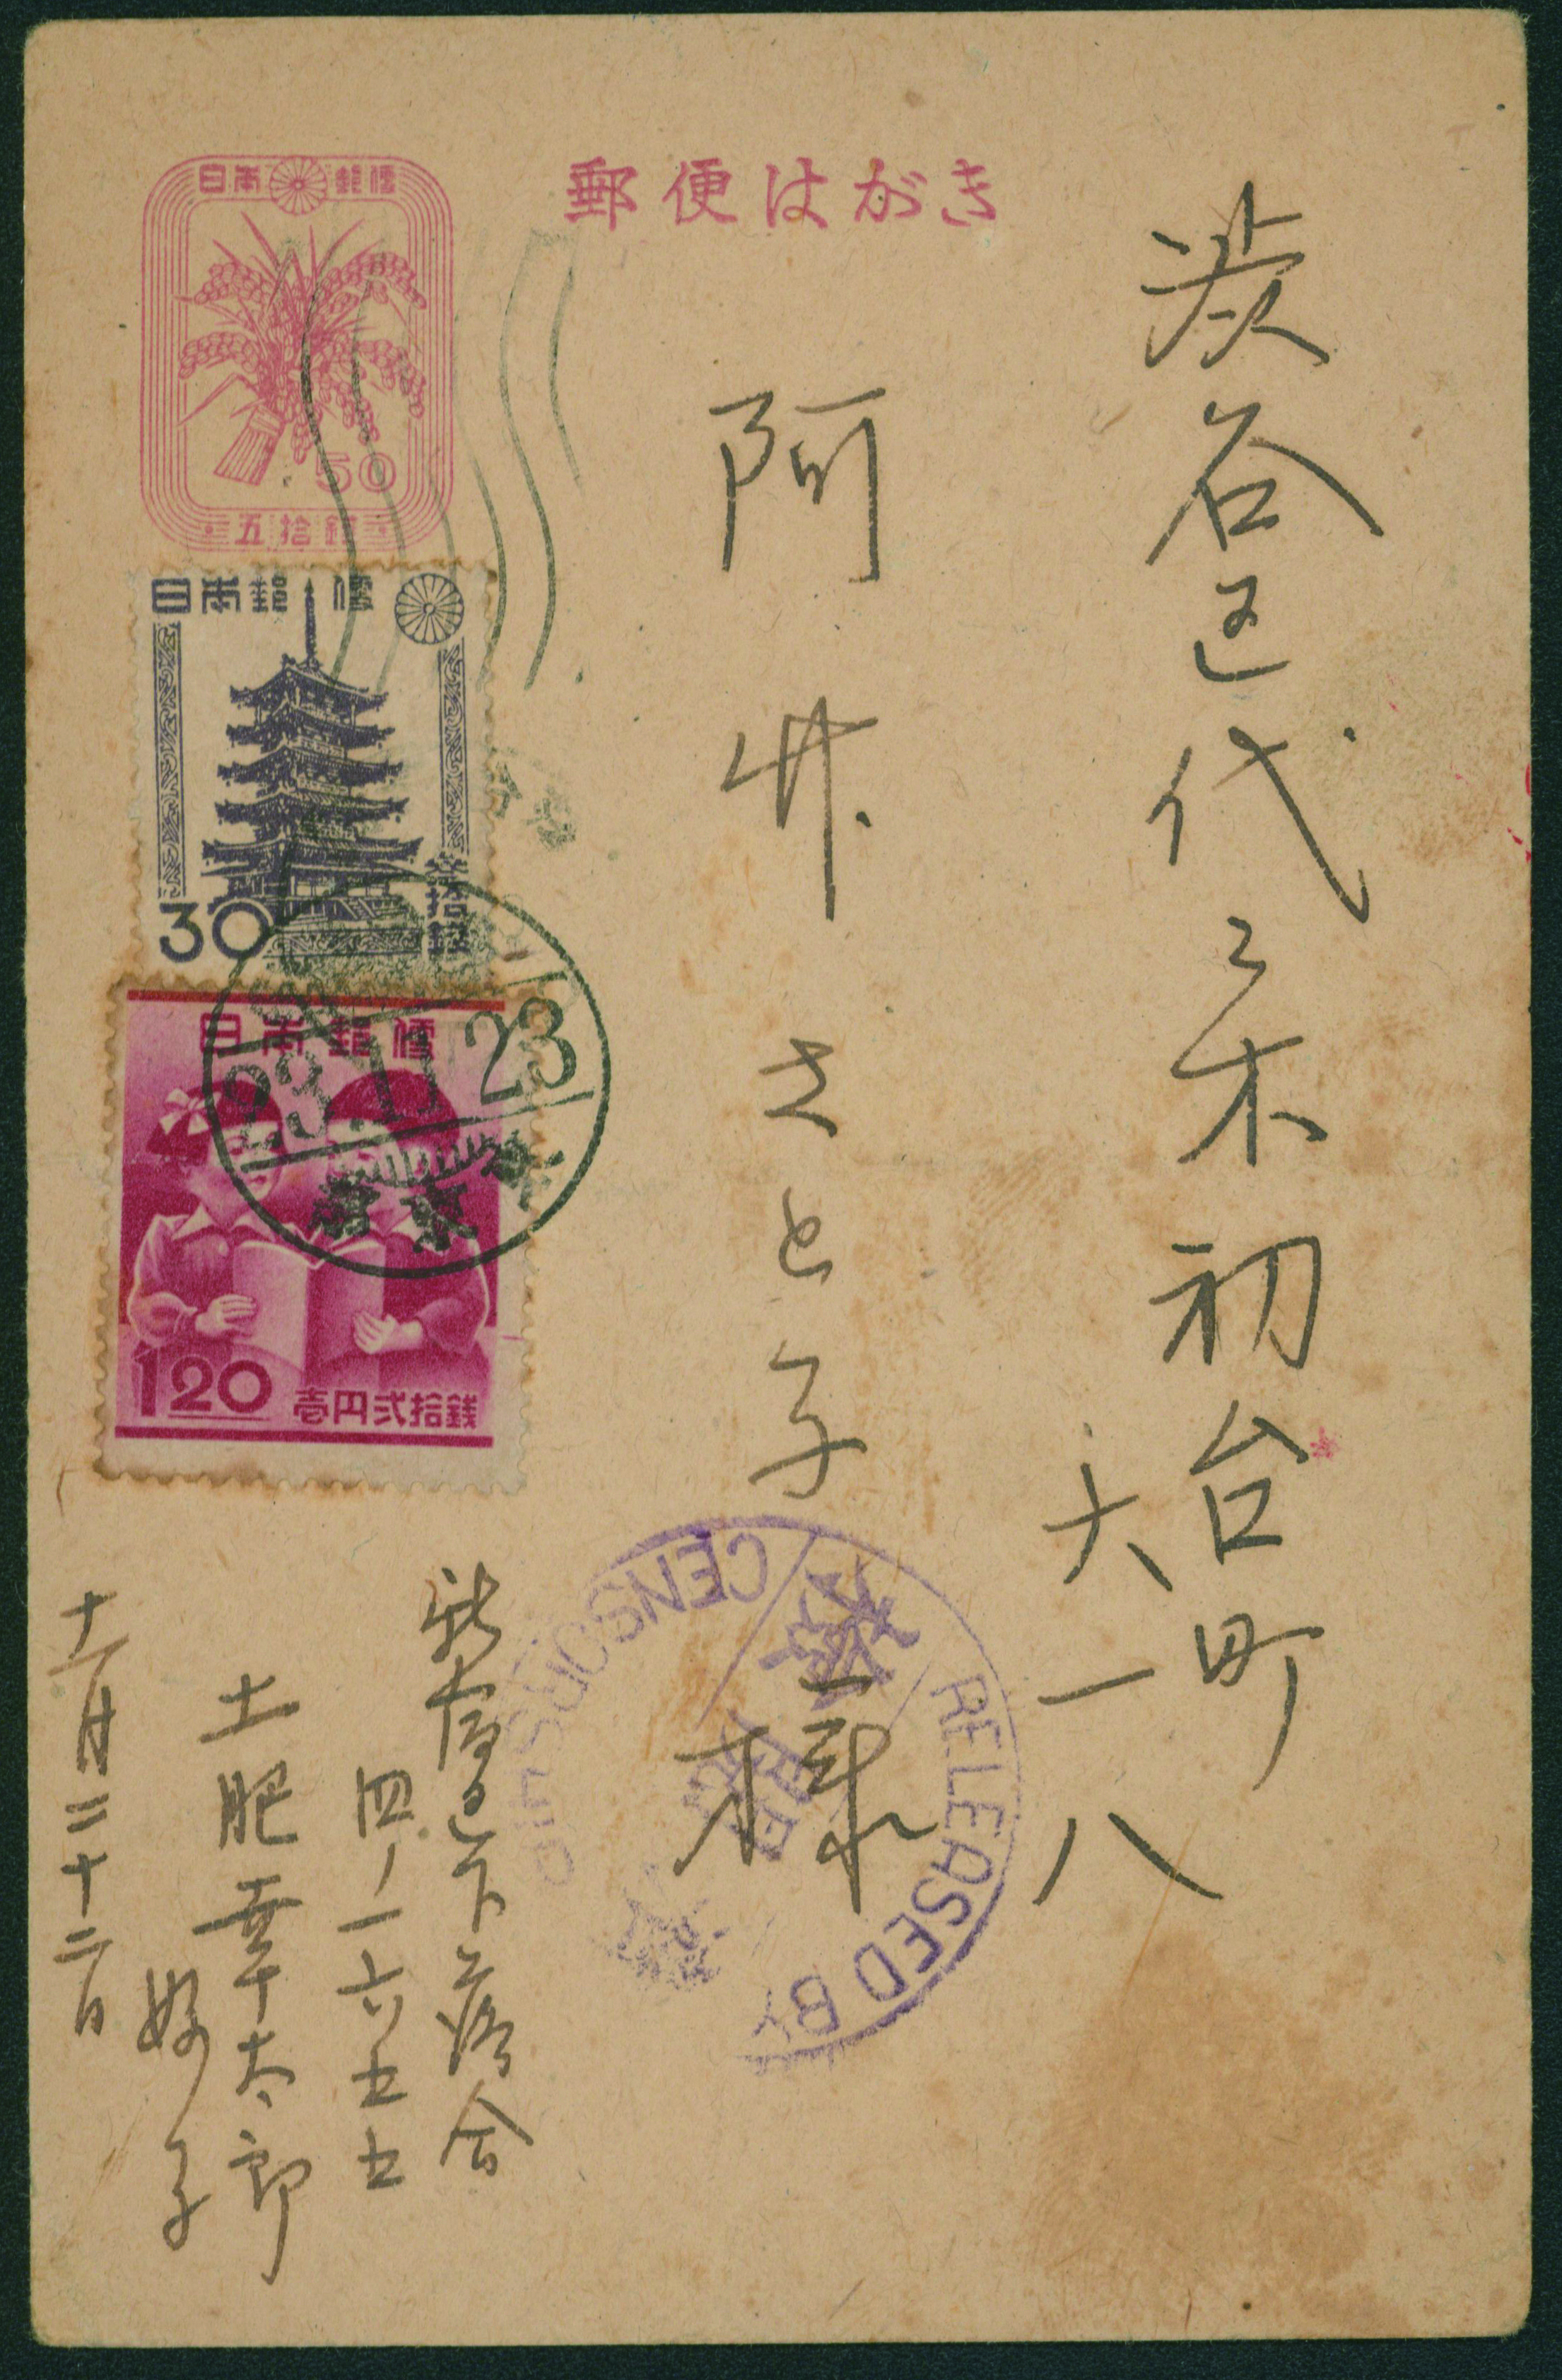 郵便はがき
日本郵便
50
五拾銭
日本郵便
30
参拾銭
日本郵便
1.20
壱円弐拾銭
23.11.23
東京
渋谷区代々木初台町
六一八
阿井さと子
様
CENSORSHIP
RELEASED BY
検閲
新宿区下落合
四ノ一六五五
土肥幸太郎
好子
十一月二十二日